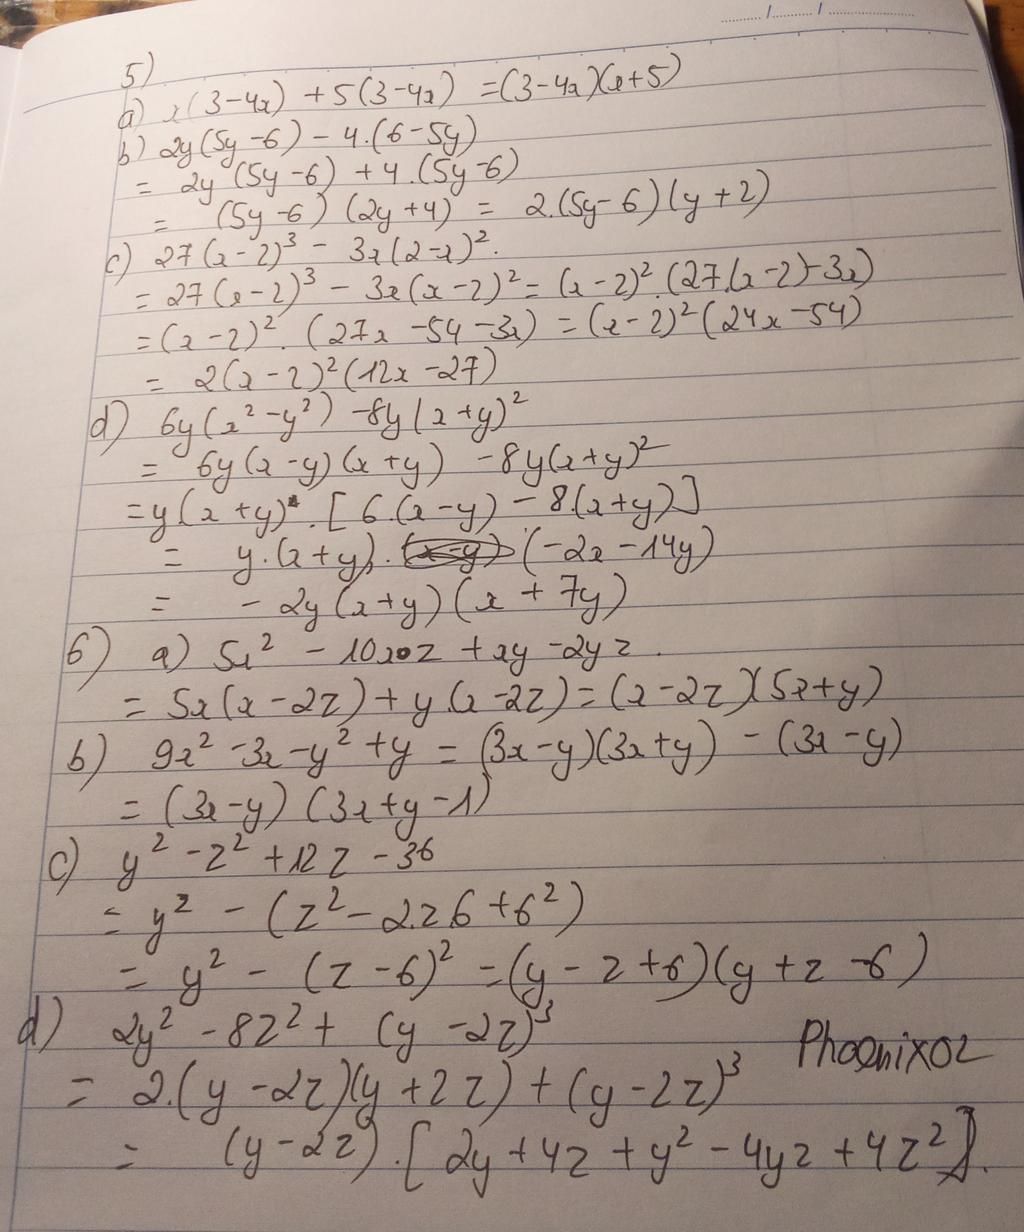 5)
a) x(3-4x) + 5(3-4x) = (3-4x)(x+5)
b) 2y(5y-6) - 4.(6-5y)
= 2y(5y-6) + 4.(5y-6)
= (5y-6)(2y+4) = 2.(5y-6)(y+2)
c) 27(x-2)³ - 3x(2-x)².
= 27(x-2)³ - 3x(x-2)² = (x-2)².(27.(x-2)-3x)
= (x-2)².(27x-54-3x) = (x-2)²(24x-54)
= 2(x-2)²(12x-27)
d) 6y(x²-y²) - 8y(x+y)²
= 6y(x-y)(x+y) - 8y(x+y)²
= y(x+y).[6.(x-y) - 8.(x+y)]
= y.(x+y).(-2x-14y)
= -2y(x+y)(x+7y)
6) a) 5x² - 10xz + xy - 2yz.
= 5x(x-2z) + y(x-2z) = (x-2z)(5x+y)
b) 9x² - 3x - y² + y = (3x-y)(3x+y) - (3x-y)
= (3x-y)(3x+y-1)
c) y² - z² + 12z - 36
= y² - (z² - 2.z.6 + 6²)
= y² - (z-6)² = (y-z+6)(y+z-6)
d) 2y² - 8z² + (y-2z)³
Phoenix02
= 2.(y-2z)(y+2z) + (y-2z)³
= (y-2z).[2y+4z+y²-4yz+4z²].